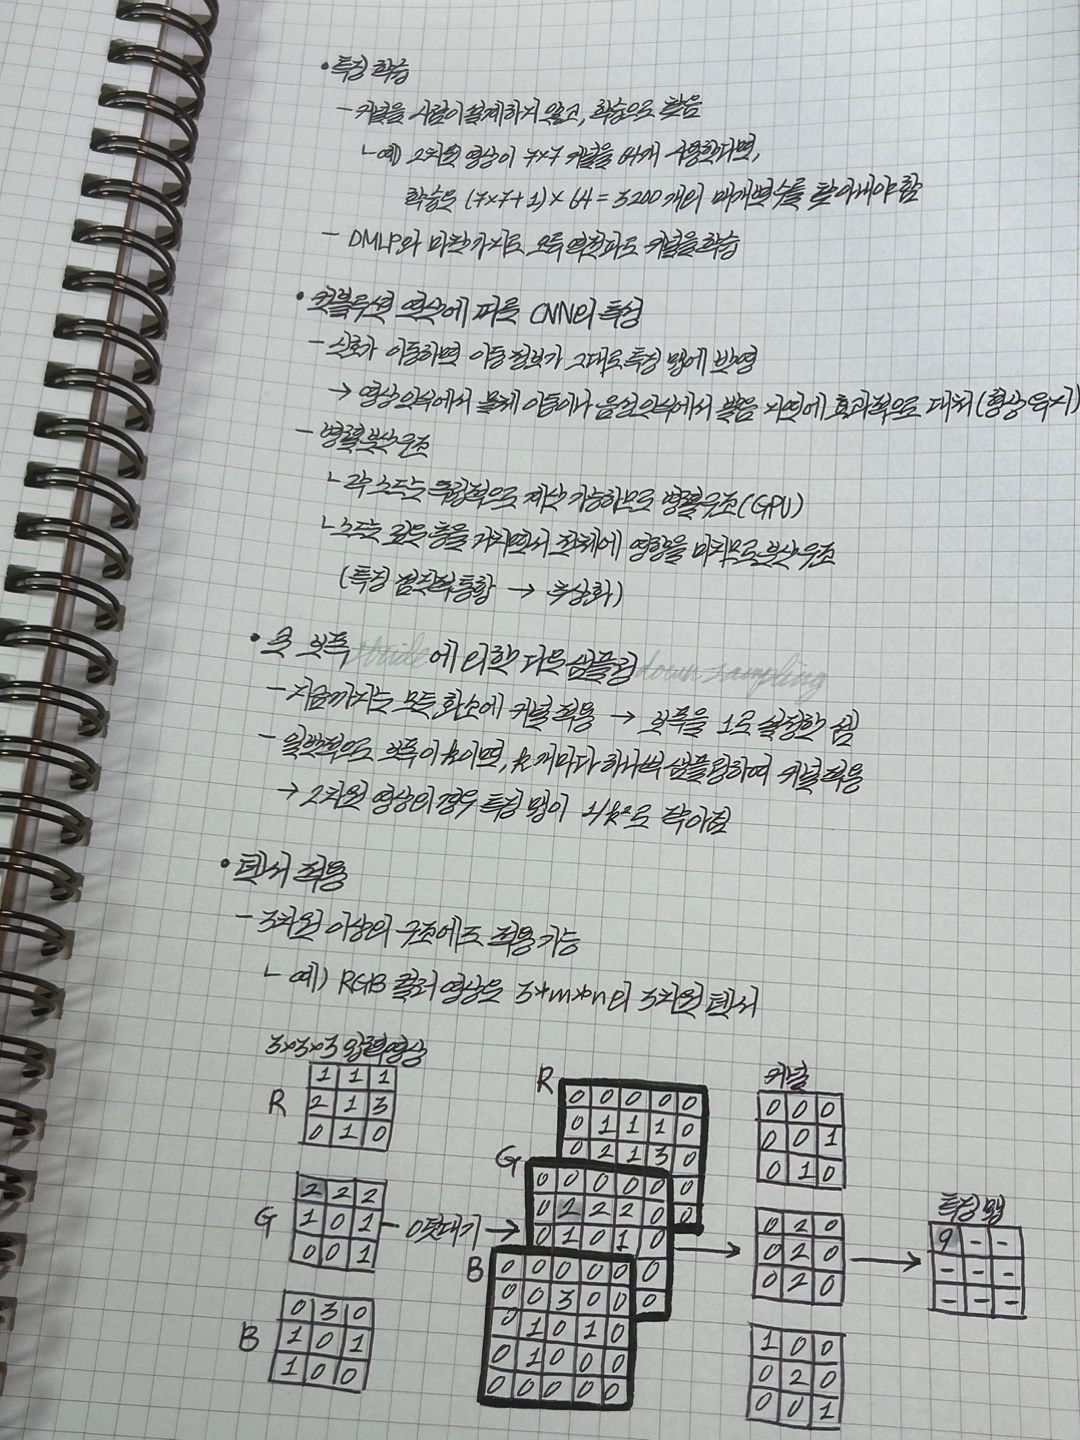 • 특징 학습
- 커널을 사람이 설계하지 않고, 학습으로 찾음
ㄴ 예) 2차원 영상이 7×7 커널을 64개 사용한다면,
학습은 (7×7+1)×64=3200개의 매개변수를 찾아내야 함
- DMLP와 마찬가지로 오류 역전파로 커널을 학습
• 컨볼루션 연산에 따른 CNN의 특성
- 신호가 이동하면 이동 정보가 그대로 특징 맵에 반영
→ 영상 인식에서 물체 이동이나 음성 인식에서 발음 지연에 효과적으로 대처(형상 유지)
- 병렬 분산 구조
ㄴ 각 노드는 독립적으로 계산 가능하므로 병렬 구조(GPU)
ㄴ 노드는 깊은 층을 거치면서 전체에 영향을 미치므로 분산 구조
(특징 점진적 통합 → 추상화)
• 큰 보폭 stride 에 의한 다운샘플링 down sampling
- 지금까지는 모든 화소에 커널 적용 → 보폭을 1로 설정한 셈
- 일반적으로 보폭이 k이면, k개마다 하나씩 샘플링하여 커널 적용
→ 2차원 영상의 경우 특징 맵이 1/k²로 작아짐
• 텐서 적용
- 3차원 이상의 구조에도 적용 가능
ㄴ 예) RGB 컬러 영상은 3×m×n의 3차원 텐서
3×3×3 입력영상
R
1 1 1
2 1 3
0 1 0
G
2 2 2
1 0 1
0 0 1
B
0 3 0
1 0 1
1 0 0
0덧대기 →
R
0 0 0 0 0
0 1 1 1 0
0 2 1 3 0
0
0
G
0 0 0 0 0
0 2 2 2 0
0 1 0 1 0
0
0
B
0 0 0 0 0
0 0 3 0 0
0 1 0 1 0
0 1 0 0 0
0 0 0 0 0
→
커널
0 0 0
0 0 1
0 1 0
0 2 0
0 2 0
0 2 0
1 0 0
0 2 0
0 0 1
→
특징 맵
9 - -
- - -
- - -